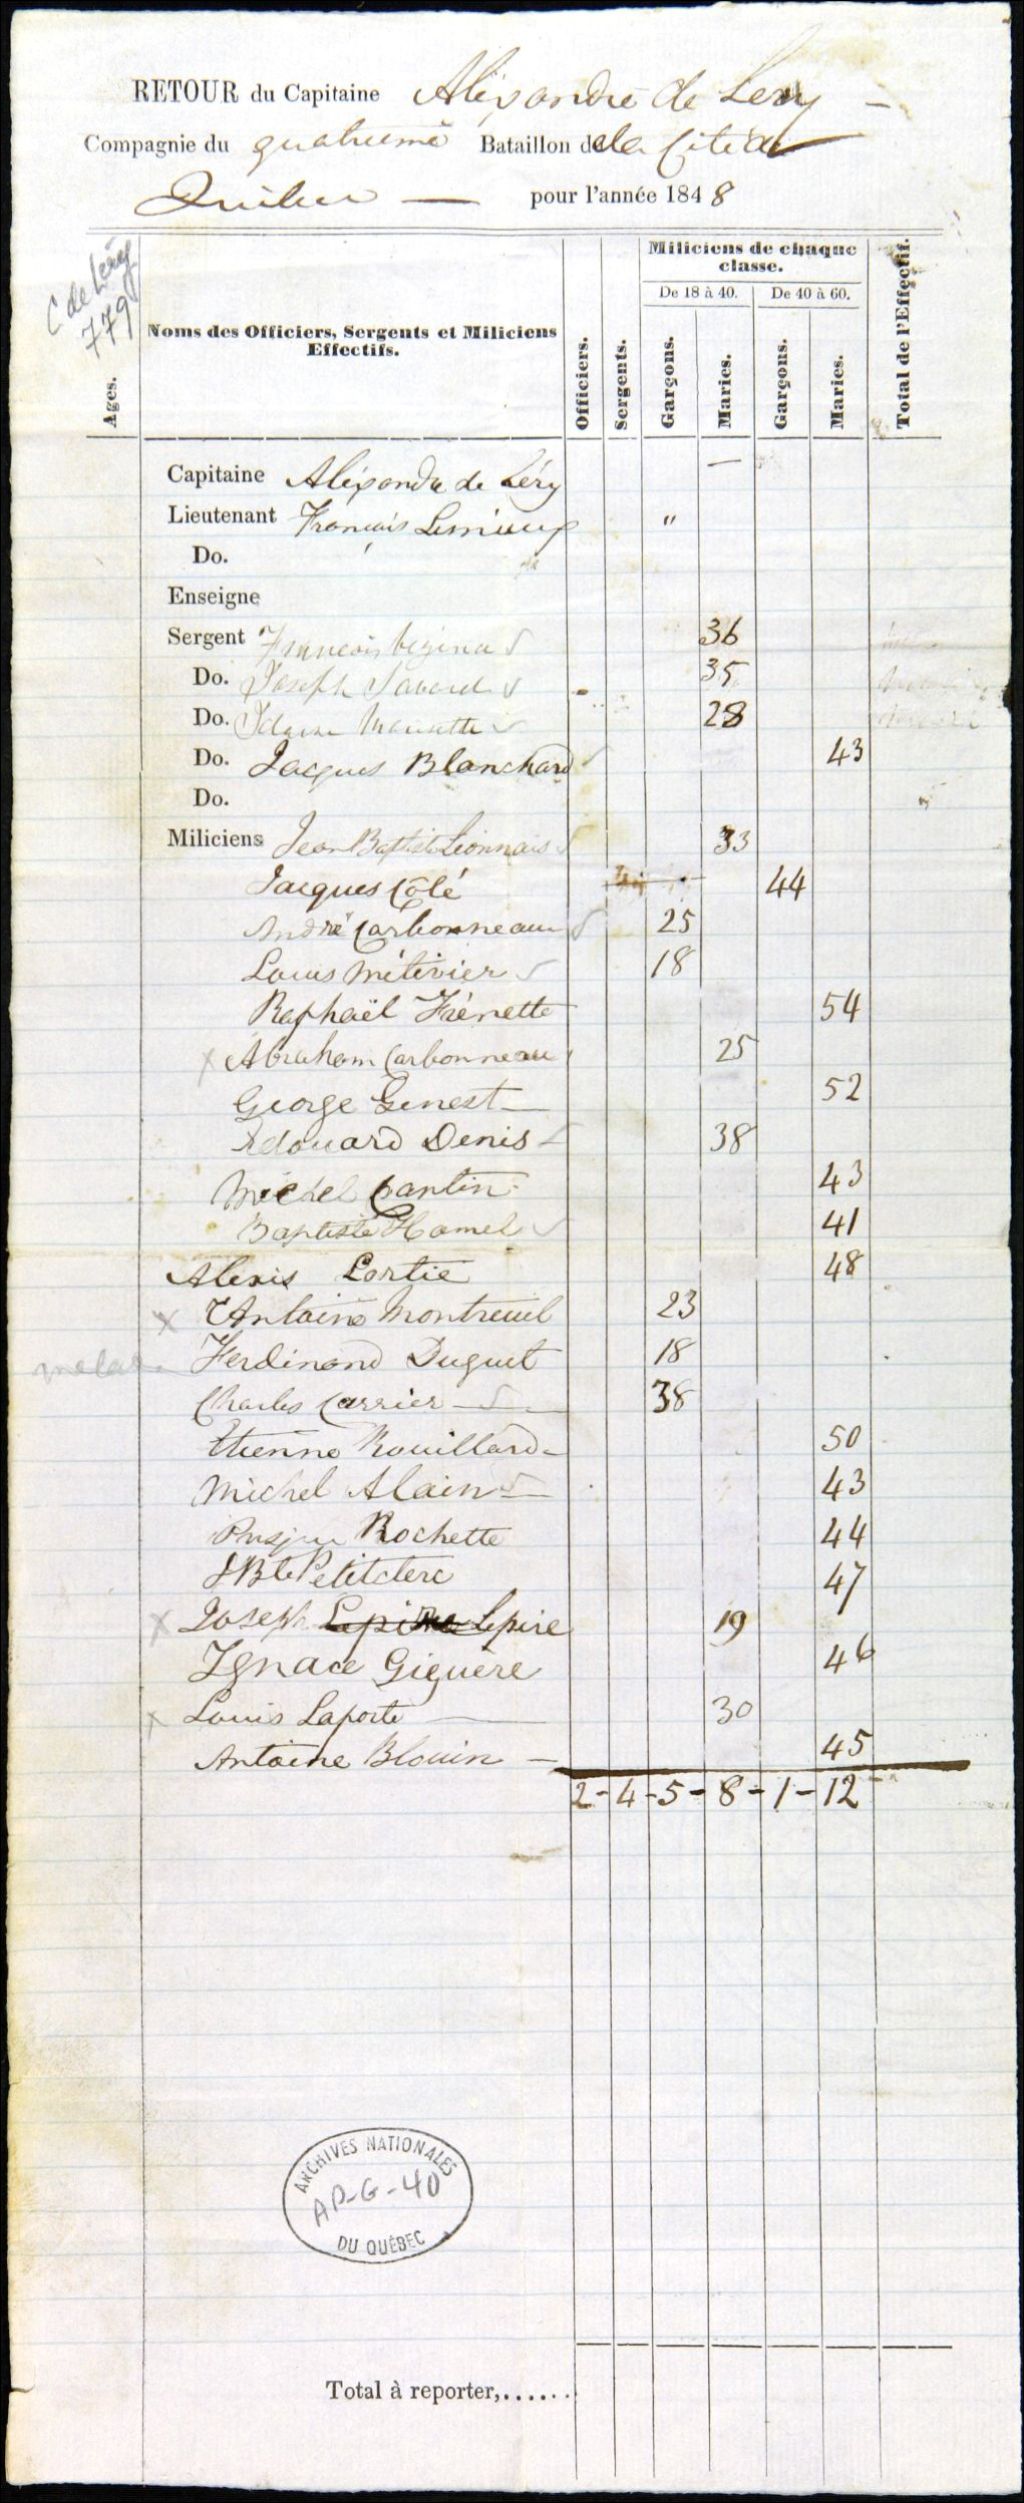 RETOUR du Capitaine Aléxandre de Lery —
Compagnie du quatrième Bataillon de la Cité de
Québec — pour l'année 1848
C de Léry
779
Ages.
Noms des Officiers, Sergents et Miliciens
Effectifs.
Officiers.
Sergents.
Miliciens de chaque
classe.
De 18 à 40.
De 40 à 60.
Garçons.
Maries.
Garçons.
Maries.
Total de l'Effectif.
Capitaine Aléxandre de Léry —
Lieutenant Francais Lemieux "
Do.
Enseigne
Sergent Francois Vezina 36
Do. Joseph Savard 35
Do. 28
Do. Jacques Blanchard 43
Do.
Miliciens Jean Baptiste Lionnais 33
Jacques Côté 44
André Carbonneau 25
Louis Métivier 18
Raphaël Frénette 54
x Abraham Carbonneau 25
George Genest — 52
Edouard Denis 38
Michel Cantin 43
Baptiste Hamel 41
Alexis Lortie 48
x Antoine Montreuil 23
Ferdinand Duguet 18
Charles Carrier — 38
Etienne Rouillard — 50
Michel Alain — 43
Rochette 44
J Bte Petitclerc 47
x Joseph Lepire Lepire 19
Ignace Giguère 46
x Louis Laporte — 30
Antoine Blouin — 45
2 - 4 - 5 - 8 - 1 - 12 -
ARCHIVES NATIONALES
AP-G-40
DU QUÉBEC
Total à reporter,......